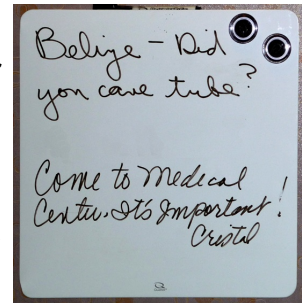 Belize - Did
you cave tube?
Come to Medical
Center. It's Important!
Cristol